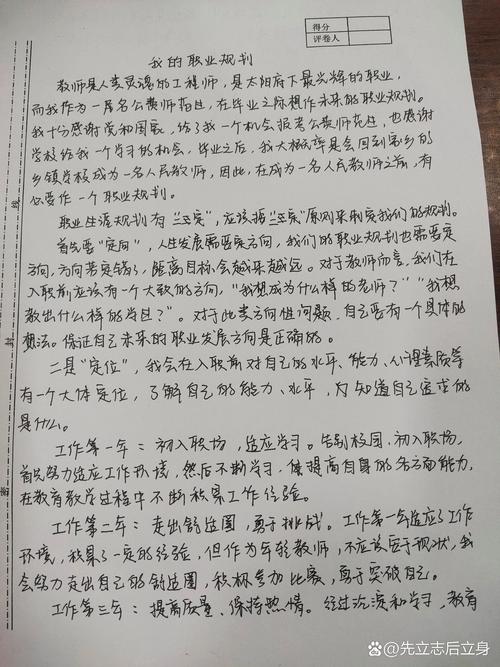 得分
评卷人
我的职业规划
教师是人类灵魂的工程师，是太阳底下最光辉的职业，
而我作为一名公费师范生，在毕业之际想作未来的职业规划。
我十分感谢党和国家，给了我一个机会报考公费师范生，也感谢
学校给我一个学习的机会，毕业之后，我大概率是会回到家乡的
乡镇学校成为一名人民教师，因此，在成为一名人民教师之前，有
必要作一个职业规划。
职业生涯规划有“三定”，应该按“三定”原则来制定我们的规划。
首先要“定向”，人生发展需要定方向，我们的职业规划也需要定
方向，方向若定错了，距离目标会越来越远。对于教师而言，我们在
入职前应该有一个大致的方向，“我想成为什么样的老师？”“我想
教出什么样的学生？”。对于此类方向性问题，自己要有一个具体的
想法。保证自己未来的职业发展方向是正确的。
二是“定位”，我会在入职前对自己的水平、能力、心理素质等
有一个大体定位，了解自己的能力、水平，为知道自己追求的
是什么。
工作第一年：初入职场，适应学习。告别校园，初入职场，
首先努力适应工作环境，然后不断学习，提高自身的各方面能力，
在教育教学过程中不断积累工作经验。
工作第二年：走出舒适圈，勇于挑战。工作第一年适应了工作
环境，积累了一定的经验，但作为年轻教师，不应该安于现状，我
会努力走出自己的舒适圈，积极参加比赛，勇于突破自己。
工作第三年：提高质量、保持热情。经过沉淀和学习，教育
线
封
密
@先立志后立身